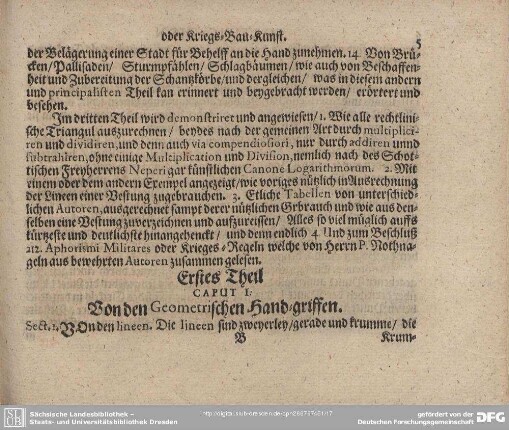 oder Kriegs-Bau-Kunst. 5
der Belägerung einer Stadt für Behelff an die Hand zunehmen. 14. Von Brü-
cken/Pallisaden/ Sturmpfählen/Schlagbäumen/wie auch von Beschaffen-
heit und Zubereitung der Schantzkörbe/und dergleichen/ was in diesem andern
und principalisten Theil kan erinnert und beygebracht werden/ erörtert und
besehen.
Im dritten Theil wird demonstriret und angewiesen/1. Wie alle rechtlini-
sche Triangul auszurechnen/ beydes nach der gemeinen Art durch multiplici-
ren und dividiren,und denn auch via compendiosiori, nur durch addiren unnd
subtrahiren,ohne einige Multiplication und Division,nemlich nach des Schot-
tischen Freyherrens Neperi gar künstlichen Canone Logarithmorum. 2. Mit
einem oder dem andern Exempel angezeigt/wie voriges nützlich in Ausrechnung
der Lineen einer Vestung zugebrauchen. 3. Etliche Tabellen von unterschied-
lichen Autoren,ausgerechnet sampt derer nützlichen Grbrauch und wie aus den-
selben eine Vestung zuverzeichnen und aufzureissen/ Alles so viel müglich auffs
kürtzeste und deutlichste hinangehenckt/ und denn endlich 4. Und zum Beschluß
212. Aphorismi Militares oder Krieges-Regeln welche von Herrn P. Nothna-
geln aus bewehrten Autoren zusammen gelesen.
Erstes Theil
CAPUT I:
Von den Geometrischen Hand-griffen.
Sect. 1. VOn den lineen. Die lineen sind zweyerley/gerade und krumme/ die
B Krum-
SLUB
Sächsische Landesbibliothek –
Staats- und Universitätsbibliothek Dresden
gefördert von der
Deutschen Forschungsgemeinschaft
DFG